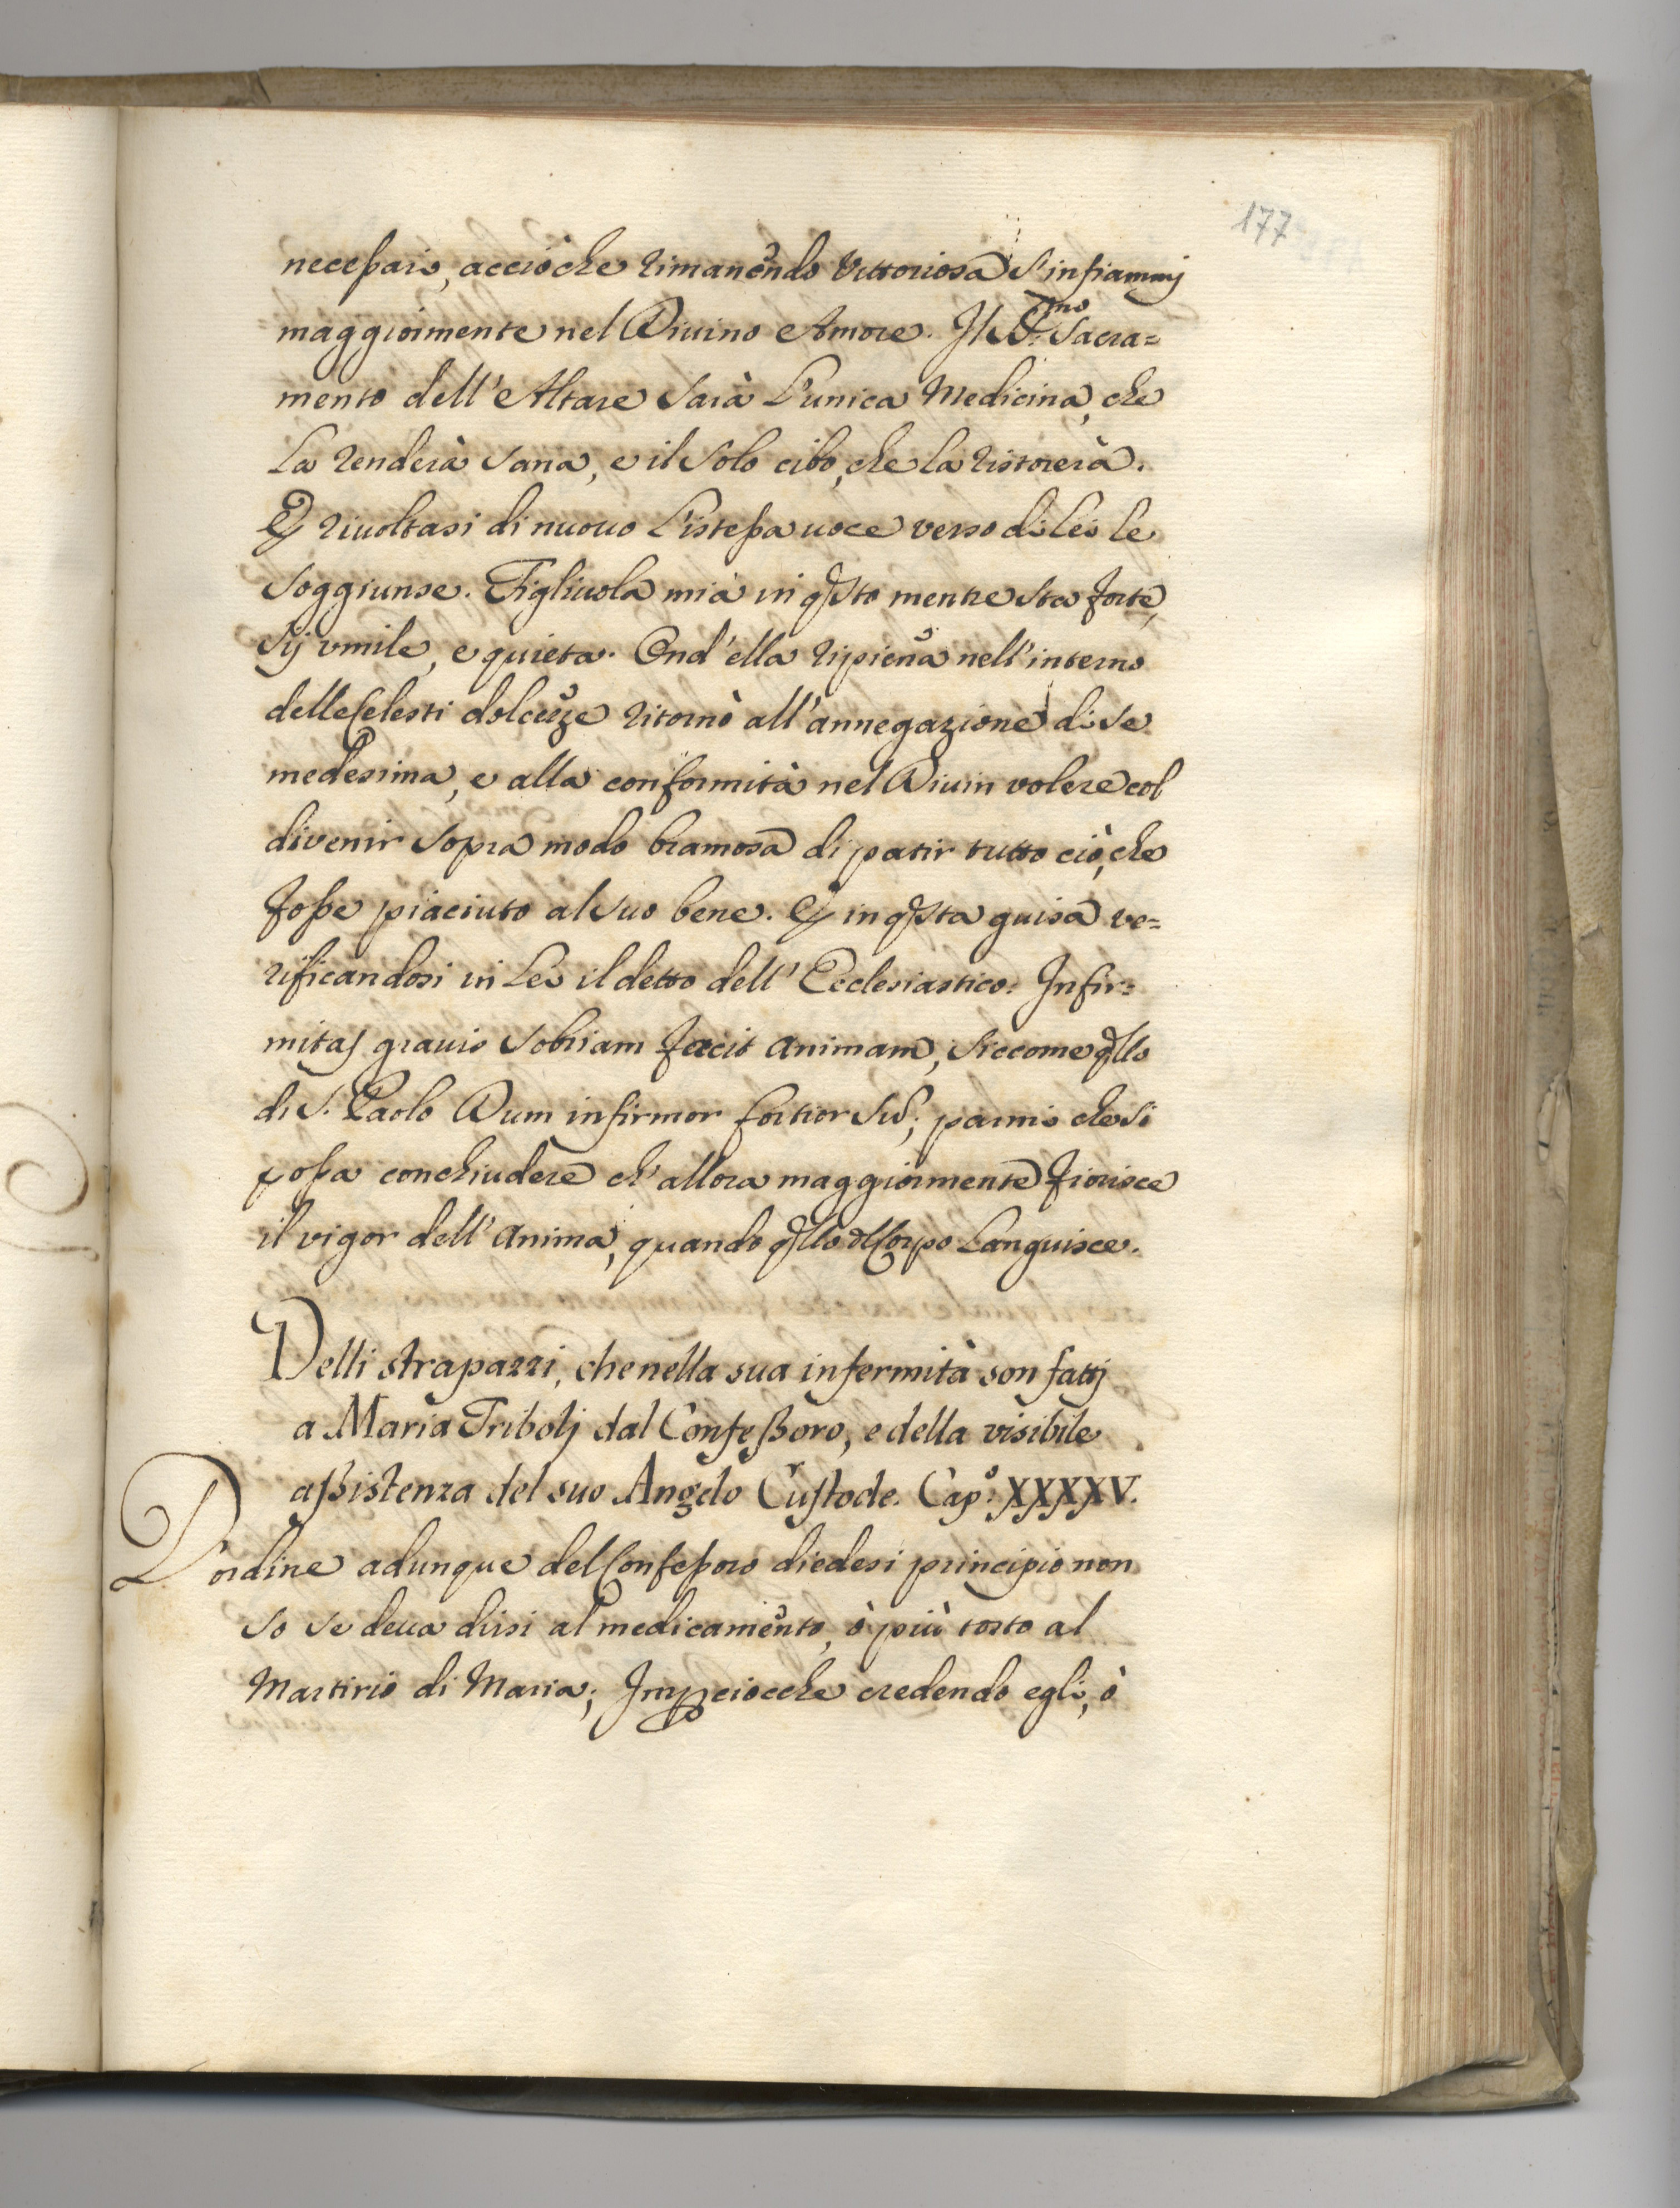 177
necessari, acciòche rimanendo Vittoriosa s'infiammj
maggiormente nel Diuino Amore. Il S.mo Sacra=
mento dell'Altare sarà l'unica Medicina, che
la renderà sana, e il solo cibo, che la ristorerà.
E riuoltasi di nuouo l'istessa uoce verso di lei le
soggiunse. Figliuola mia in qsto mentre sta forte,
sij vmile, e quieta. Ond'ella ripiena nell'interno
delle Celesti dolcezze ritornò all'annegazione di se
medesima, e alla conformità nel Diuin volere col
divenir sopra modo bramosa di patir tutto ciò, che
fosse piaciuto al suo bene. E in qsta guisa ve=
rificandosi in lei il detto dell'Ecclesiastico: Infir=
mitas grauis sobriam facit animam, siccome qllo
di S. Paolo Dum infirmor fortior sū; parmi che si
possa conchiudere ch'allora maggiormente fiorisce
il vigor dell'Anima, quando qllo dl Corpo languisce.
Delli strapazzi, che nella sua infermità son fattj
a Maria Tribolj dal Confessoro, e della visibile
assistenza del suo Angelo Custode. Cap.º XXXXV.
D'ordine adunque del Confessoro diedesi principio non
so se deua dirsi al medicamento, ò più tosto al
Martirio di Maria; Imperciocche credendo egli, ò